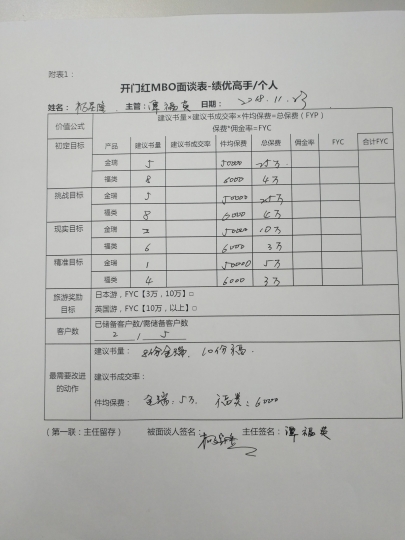 附表1：
开门红MBO面谈表-绩优高手/个人
姓名： 主管：谭福英 日期：2018.11.23
价值公式 建议书量×建议书成交率×件均保费=总保费（FYP）
保费*佣金率=FYC
初定目标 产品 建议书量 建议书成交率 件均保费 总保费 佣金率 FYC 合计FYC
金瑞 5 50000 25万
福类 8 6000 4万
挑战目标 金瑞 5 50000 25万
福类 8 6000 4万
现实目标 金瑞 2 50000 10万
福类 6 6000 3万
精准目标 金瑞 1 50000 5万
福类 4 6000 3万
旅游奖励目标 日本游，FYC【3万，10万】□
英国游，FYC【10万，以上】□
客户数 已储备客户数/需储备客户数
2 / 5
最需要改进的动作 建议书量： 份金瑞，10份福．
建议书成交率：
件均保费： 金瑞：5万． 福类：6000
（第一联：主任留存） 被面谈人签名： 主任签名：谭福英